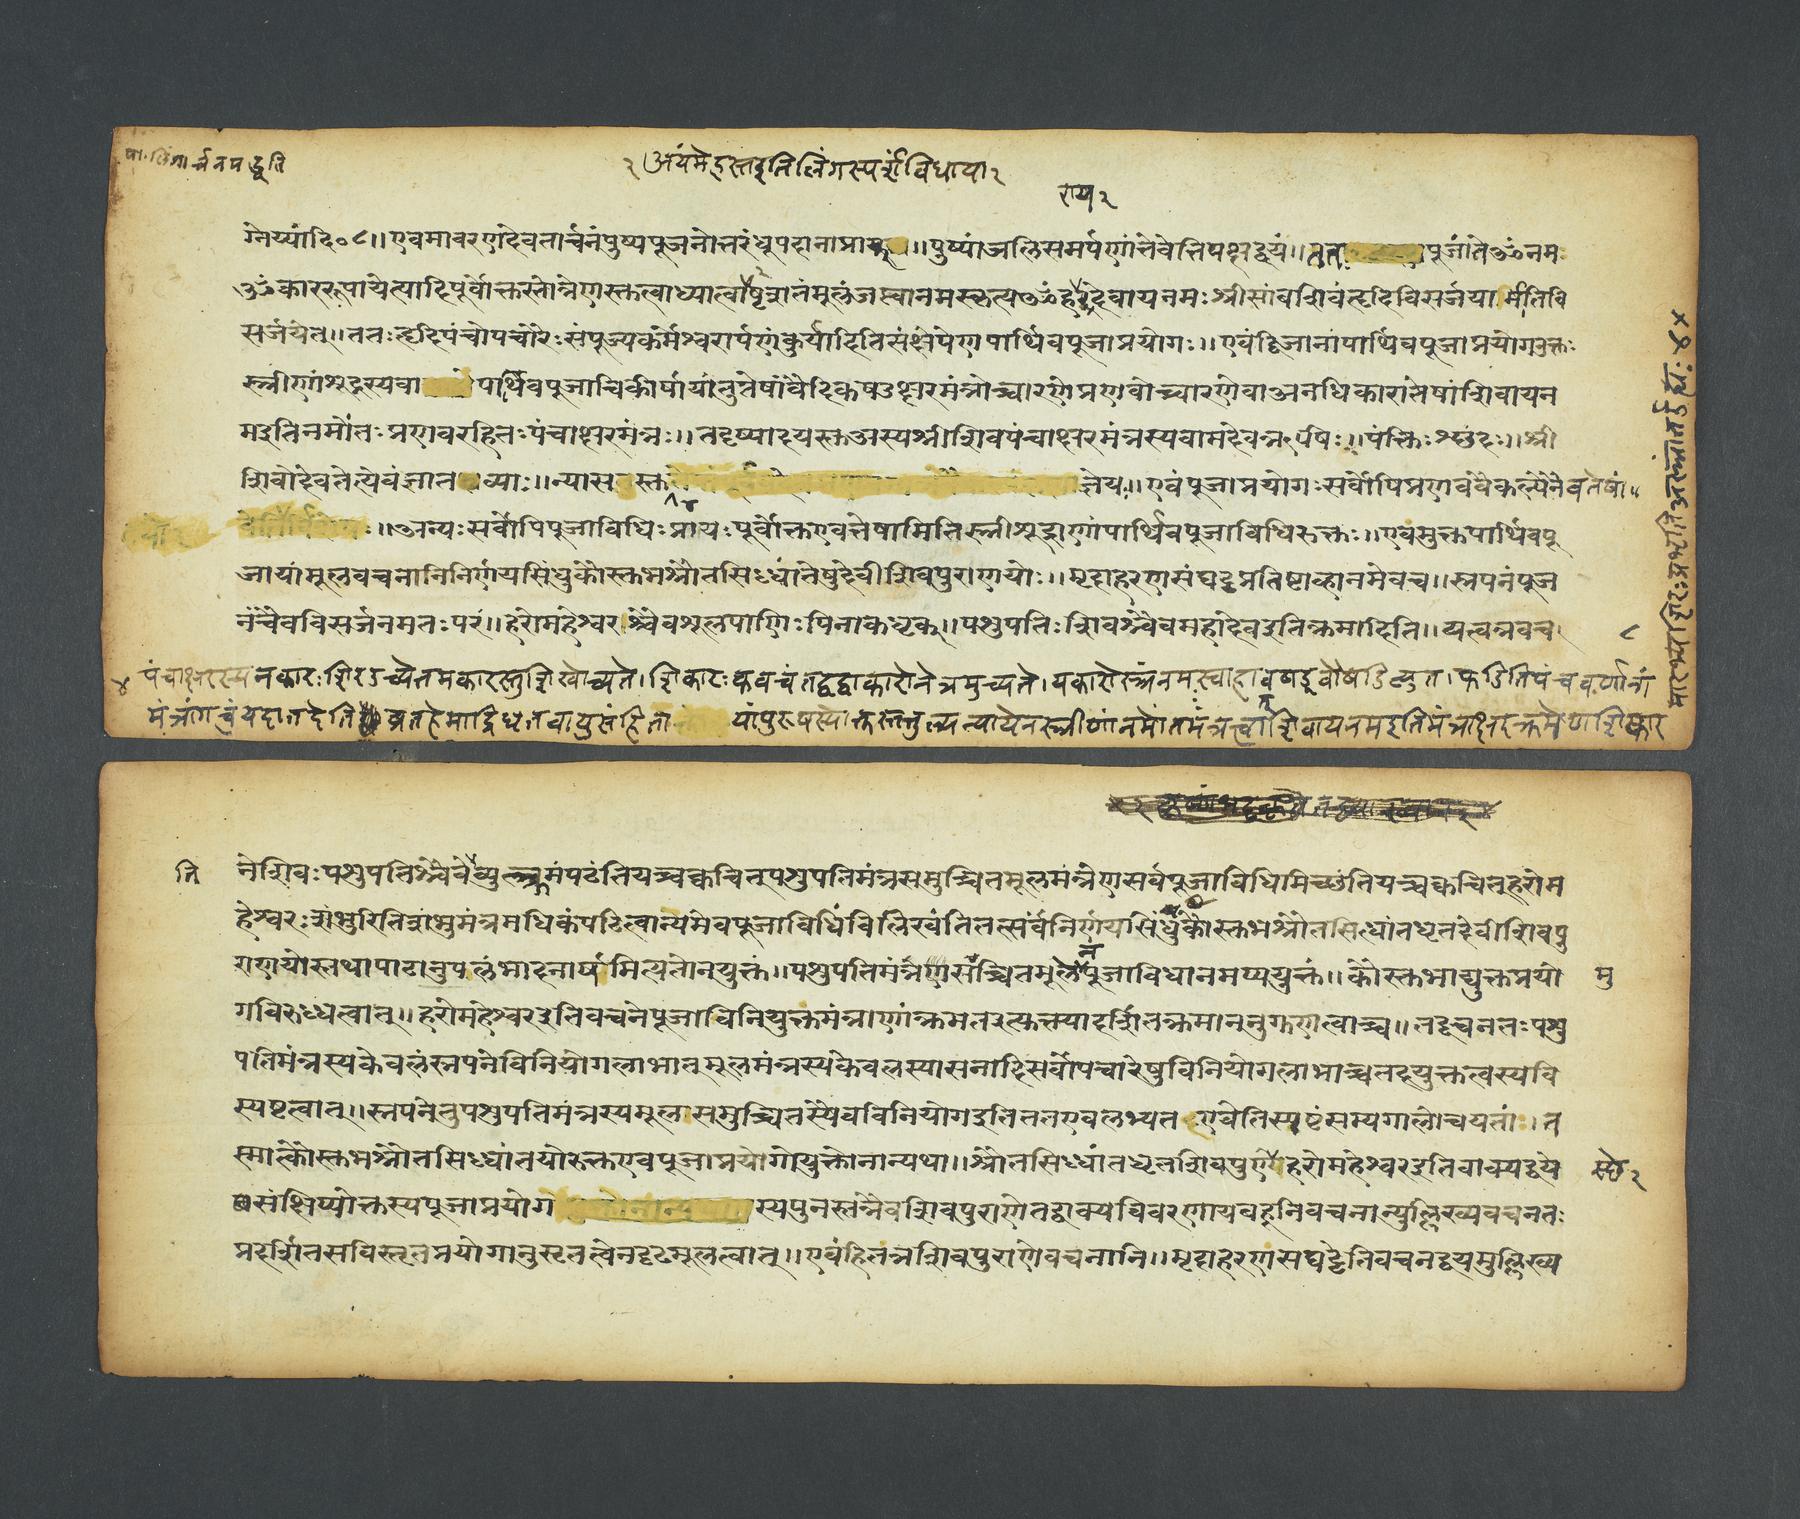 पा. लिंगार्चनपद्धति
२ अयंमेहस्तइतिलिंगस्पर्शंविधाया२
राय२
ग्नेय्यांदि०८॥एवमावरणदेवतार्चनंपुष्पपूजनोत्तरंधूपदानात्प्राक्॥पुष्पांजलिसमर्पणांतेवेतिपक्षद्वयं॥ततः पूजांतेॐनमः
ॐकाररूपायेत्यादिपूर्वोक्तस्तोत्रेणस्तुत्वाध्यात्वाषट्शतंमूलंजप्त्वानमस्कृत्यॐहरदेवायनमःश्रीसांबशिवंहृदिविसर्जयामीतिवि
सर्जयेत्॥ततःहृदिपंचोपचारैःसंपूज्यकर्मेश्वरार्पणंकुर्यादितिसंक्षेपेणपार्थिवपूजाप्रयोगः॥एवंद्विजानांपार्थिवपूजाप्रयोगउक्तः
स्त्रीणांशूद्रस्यवा पार्थिवपूजाचिकीर्षायांतुतेषांवैदिकषडक्षरमंत्रोच्चारणेप्रणवोच्चारणेवाअनधिकारात्तेषांशिवायन
मइतिनमोंतःप्रणवरहितःपंचाक्षरमंत्रः॥तदृष्यादयस्तुअस्यश्रीशिवपंचाक्षरमंत्रस्यवामदेवऋषिः॥पंक्तिःश्छंदः॥श्री
शिवोदेवतेत्येवंज्ञातव्याः॥न्यासस्तु ज्ञेयः॥एवंपूजाप्रयोगःसर्वोपिप्रणववैकल्पेनैवतेषां
॥अन्यःसर्वोपिपूजाविधिःप्रायःपूर्वोक्तएवतेषामितिस्त्रीशूद्राणांपार्थिवपूजाविधिरुक्तः॥एवमुक्तपार्थिवपू
जायांमूलवचनानिनिर्णयसिंधुकौस्तुभश्रौतसिध्धांतेषुदेवीशिवपुराणयोः॥मृदाहरणसंघट्टप्रतिष्टाव्हानमेवच॥स्नपनंपूज
नंचैवविसर्जनमतःपरं॥हरोमहेश्वरश्चैवशूलपाणिःपिनाकधृक्॥पशुपतिःशिवश्चैवमहादेवइतिक्रमादिति॥यत्वत्रवच
८
४ पंचाक्षरस्यनकारःशिरउच्यतेमकारस्तुशिखोच्यते।शिकारःकवचंतद्वद्वाकारोनेत्रमुच्यते।यकारोस्त्रंनमस्वाहावषट्वौषट्हुंच्युत।फडितिपंचवर्णानां
मंत्रांगत्वंयदातदेति व्रतहेमाद्रिधृतवायुसंहिता यांपुरुषस्योक्तस्तत्तुल्यन्यायेनस्त्रीणांनमोंतमंत्रत्वाशिवायनमइतिमंत्राक्षरक्रमेणशिकार
मारभ्यशिरःप्रभृतिअस्त्रांतंज्ञेयः४×
ति
नेशिवःपशुपतिश्चैवेत्युत्क्रमंपठंतियच्चक्वचित्पशुपतिमंत्रसमुच्चितमूलमंत्रेणसर्वपूजाविधिमिच्छंतियच्चक्वचित्हरोम
हेश्वरःशंभुरितिशंभुमंत्रमधिकंपठित्वान्यमेवपूजाविधिंविलिखंतितत्सर्वंनिर्णयसिंधुकौस्तुभश्रौतसिध्धांतधृतदेवीशिवपु
राणयोस्तथापाठानुपलंभादनार्षमित्यतोनयुक्तं॥पशुपतिमंत्रेणसमुच्चितमूलेनपूजाविधानमप्ययुक्तं॥कौस्तुभाद्युक्तप्रयो
मु
गविरुध्धत्वात्॥हरोमहेश्वरइतिवचनेपूजाविनियुक्तमंत्राणांक्रमतइत्युक्तयादर्शितक्रमाननुगुणत्वाच्च॥तद्वचनतःपशु
पतिमंत्रस्यकेवलंस्नपनेविनियोगलाभात्मूलमंत्रस्यकेवलस्यासनादिसर्वोपचारेषुविनियोगलाभाच्चतदयुक्तत्वस्यवि
स्पष्टत्वात्॥स्नपनेतुपशुपतिमंत्रस्यमूलसमुच्चितस्यैवविनियोगइतिततएवलभ्यत एवेतिस्पष्टंसम्यगालोचयतां।त
स्मात्कौस्तुभश्रौतसिध्धांतयोरुक्तएवपूजाप्रयोगोयुक्तोनान्यथा॥श्रौतसिध्धांतधृतशिवपुराणेहरोमहेश्वरइतिवाक्यद्वये
संक्षिप्योक्तस्यपूजाप्रयोग स्यपुनस्तत्रैवशिवपुराणेतद्वाक्यविवरणायबहूनिवचनान्युल्लिख्यवचनतः
प्रदर्शितसविस्तृतप्रयोगानुसृतत्वेनदृढमूलत्वात्॥एवंहितत्रशिवपुराणेवचनानि॥मृदाहरणसंघट्टेतिवचनद्वयमुल्लिख्य